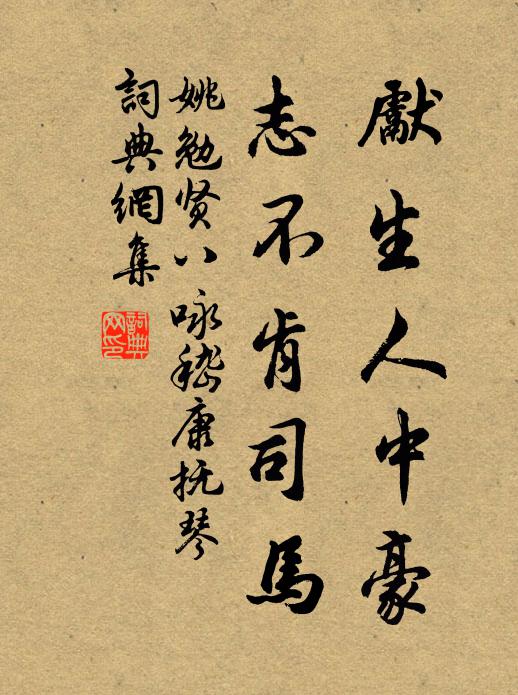 獻生人中豪
志不肯司馬
姚勉贤八咏嵇康抚琴
詞典網集
詞典网印